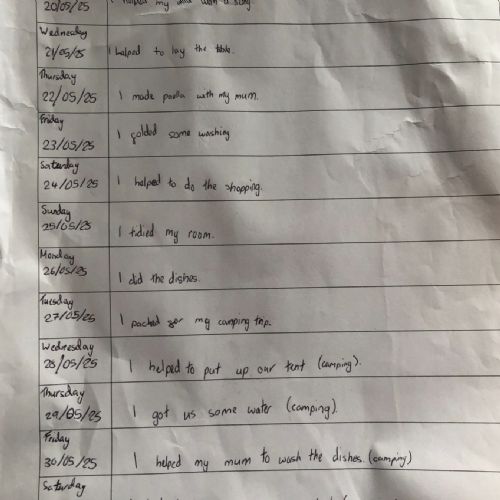 20/05/25 I helped my dad with a song
Wednesday
21/05/25 I helped to lay the table.
Thursday
22/05/25 I made paella with my mum.
Friday
23/05/25 I folded some washing
Saturday
24/05/25 I helped to do the shopping.
Sunday
25/05/25 I tidied my room.
Monday
26/05/25 I did the dishes.
Tuesday
27/05/25 I packed for my camping trip.
Wednesday
28/05/25 I helped to put up our tent (camping).
Thursday
29/05/25 I got us some water (camping).
Friday
30/05/25 I helped my mum to wash the dishes. (camping)
Saturday